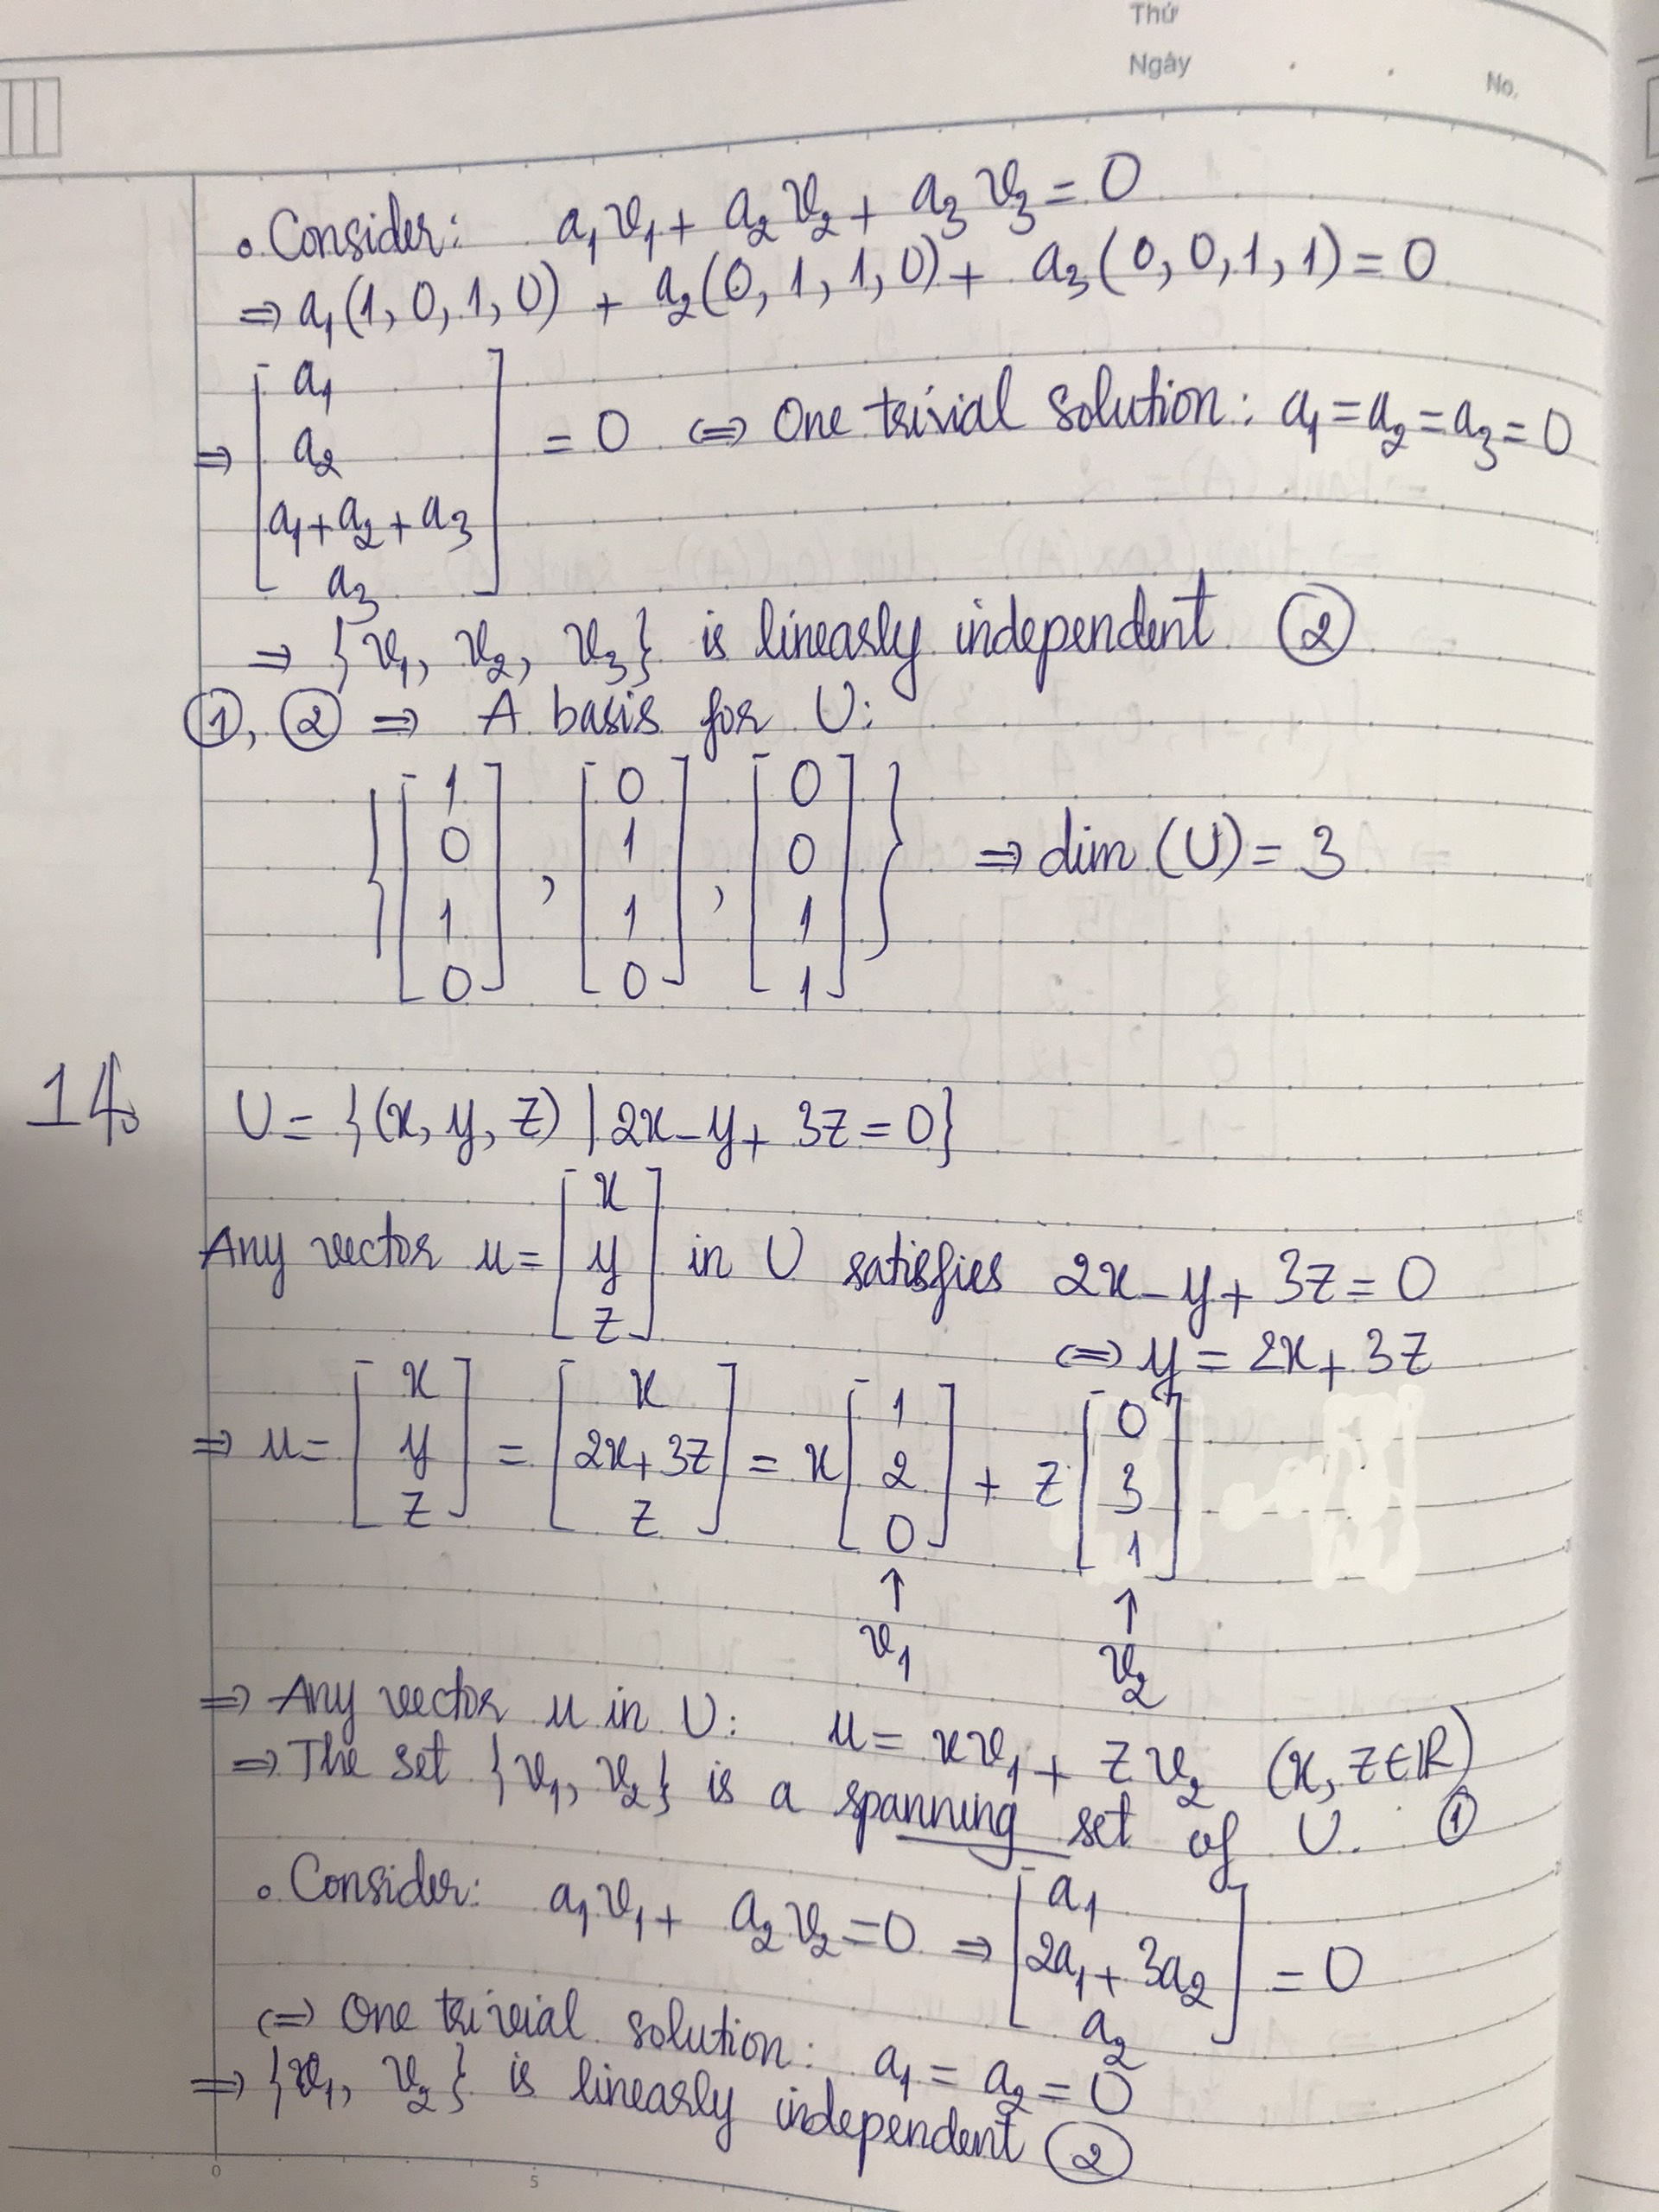 Thứ
Ngày
No.
• Consider: a₁v₁ + a₂v₂ + a₃v₃ = 0
⇒ a₁(1, 0, 1, 0) + a₂(0, 1, 1, 0) + a₃(0, 0, 1, 1) = 0
⇒ [a₁; a₂; a₁+a₂+a₃; a₃] = 0 ⇔ One trivial solution: a₁ = a₂ = a₃ = 0
⇒ {v₁, v₂, v₃} is linearly independent ②
①, ② ⇒ A basis for U:
{[1; 0; 1; 0], [0; 1; 1; 0], [0; 0; 1; 1]} ⇒ dim (U) = 3
14. U = {(x, y, z) | 2x - y + 3z = 0}
Any vector u = [x; y; z] in U satisfies 2x - y + 3z = 0
⇔ y = 2x + 3z
⇒ u = [x; y; z] = [x; 2x + 3z; z] = x[1; 2; 0] + z[0; 3; 1]
↑ ↑
v₁ v₂
⇒ Any vector u in U: u = xv₁ + zv₂ (x, z ∈ ℝ)
⇒ The set {v₁, v₂} is a spanning set of U. ①
• Consider: a₁v₁ + a₂v₂ = 0 ⇒ [a₁; 2a₁ + 3a₂; a₂] = 0
⇔ One trivial solution: a₁ = a₂ = 0
⇒ {v₁, v₂} is linearly independent ②
0 5